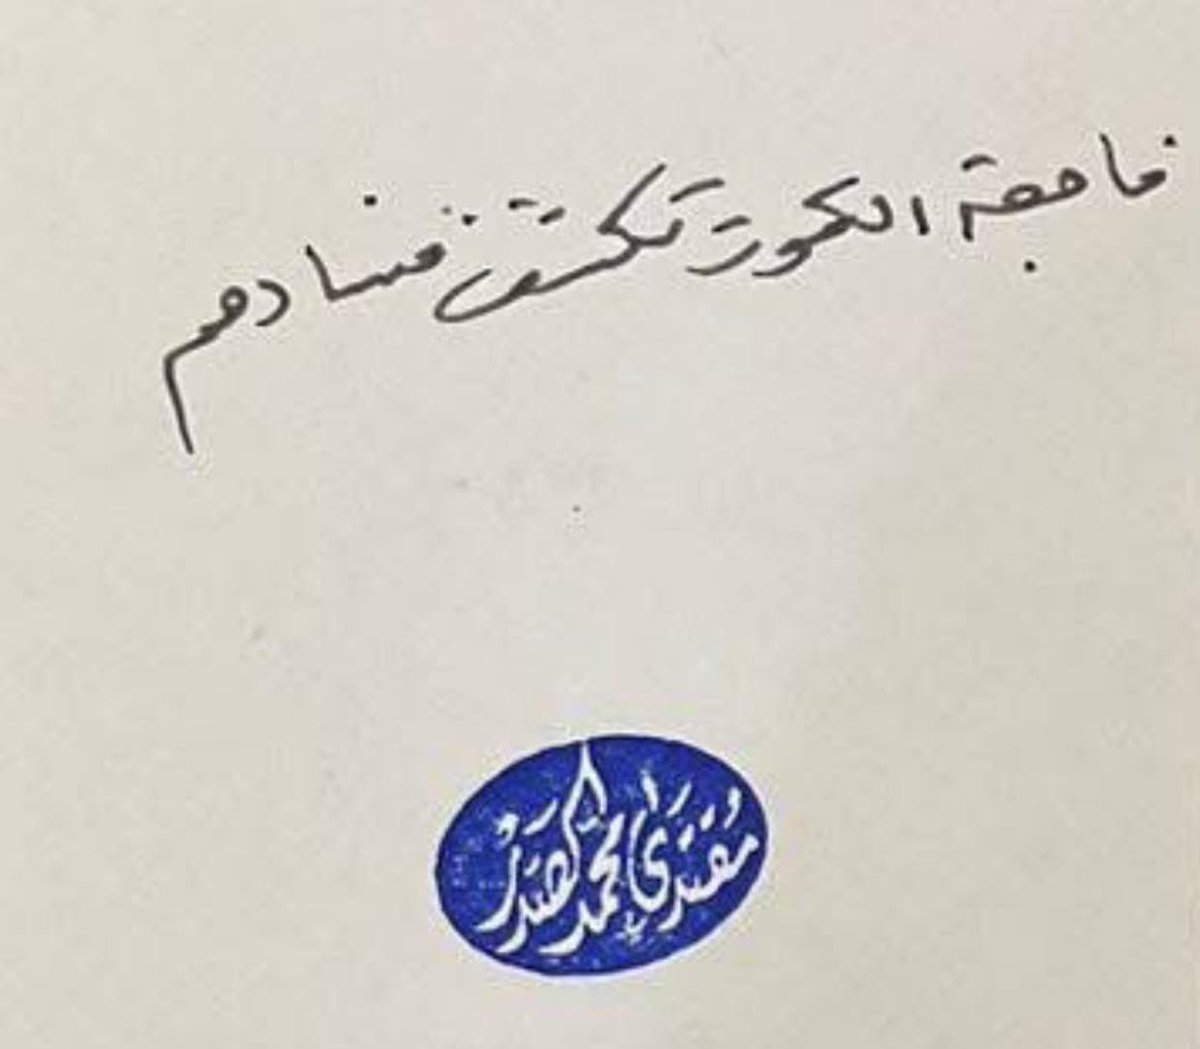 فاجعة الكوت تكشف فسادهم
مُقتَدَى محمد الصَدرْ